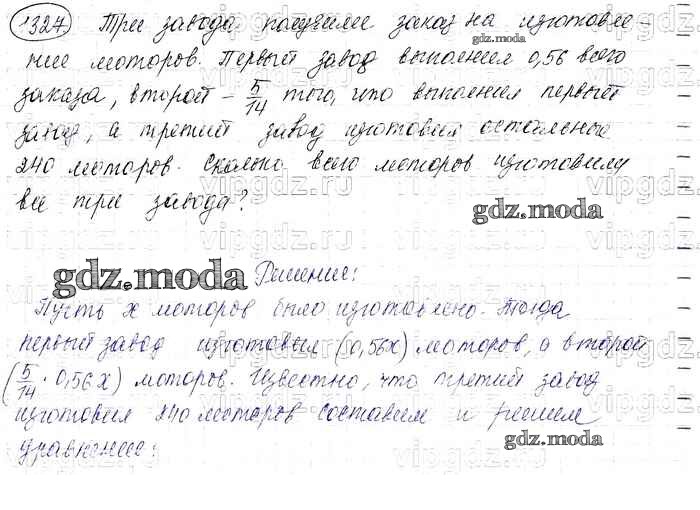 1324) Три завода получили заказ на изготовле-
ние моторов. Первый завод выполнил 0,56 всего
заказа, второй - 5/14 того, что выполнил первый
завод, а третий завод изготовил остальные
240 моторов. Сколько всего моторов изготовили
все три завода?
gdz.moda
gdz.moda
Решение:
Пусть x моторов было изготовлено. Тогда
первый завод изготовил (0,56x) моторов, а второй
(5/14 · 0,56x) моторов. Известно, что третий завод
изготовил 240 моторов составим и решим
уравнение:
gdz.moda
vipgdz.ru